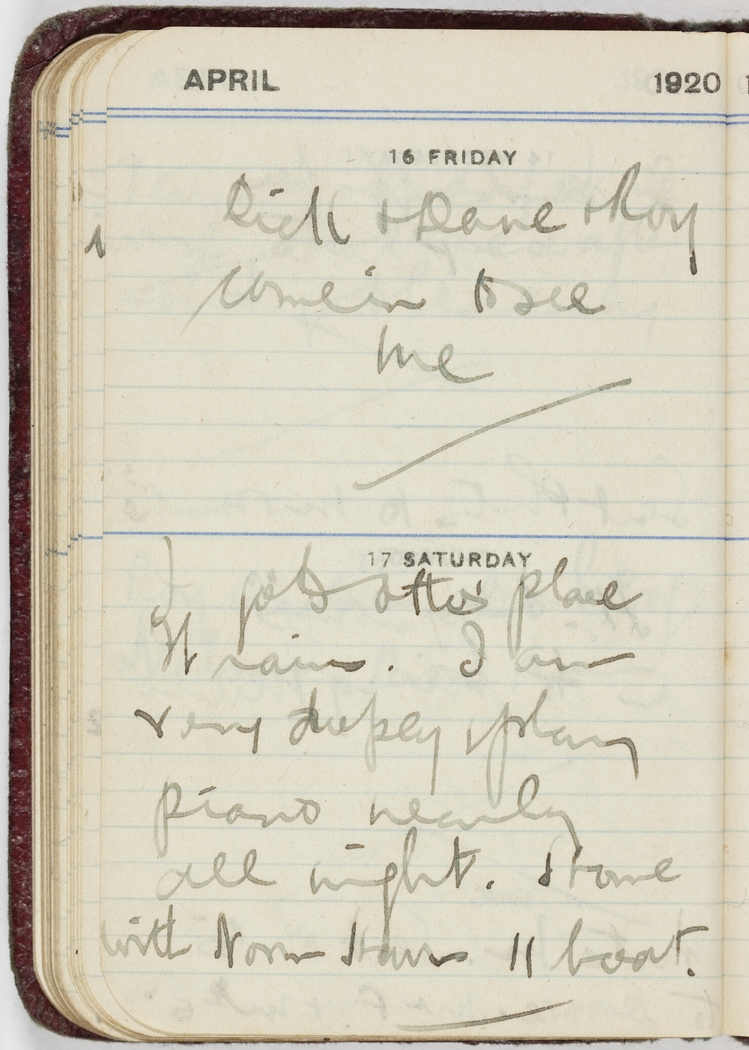 APRIL 1920
16 FRIDAY
Dick + Dane + Roy
come in to see
me
17 SATURDAY
I go to Otto's place
It rains. I am
very & play
piano nearly
all night. Home
with Norm 11 boat.